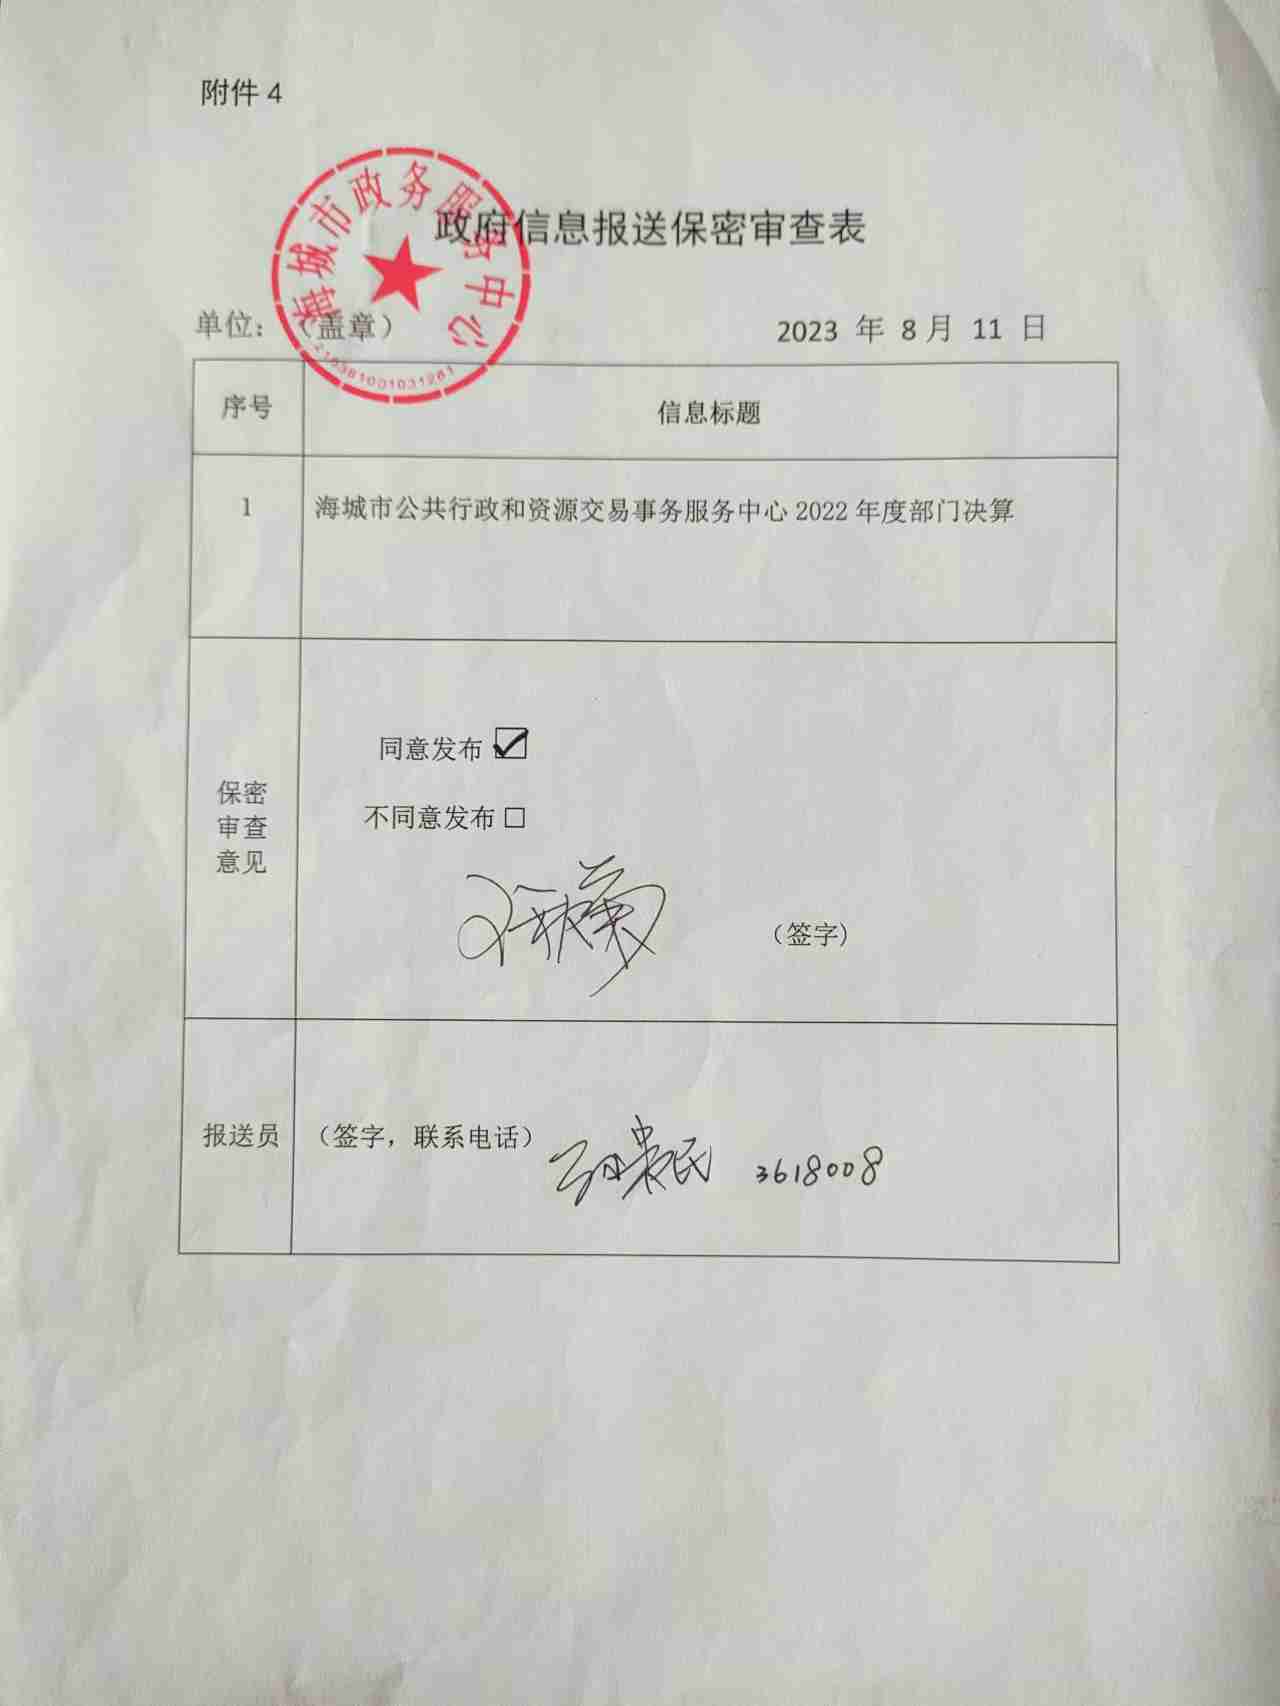 附件 4
海城市政务服务中心
政府信息报送保密审查表
单位：（盖章）
2023 年 8 月 11 日
序号 信息标题
1 海城市公共行政和资源交易事务服务中心 2022 年度部门决算
同意发布 ☑
不同意发布 □
保密
审查
意见
（签字）
报送员 （签字，联系电话）
3618008